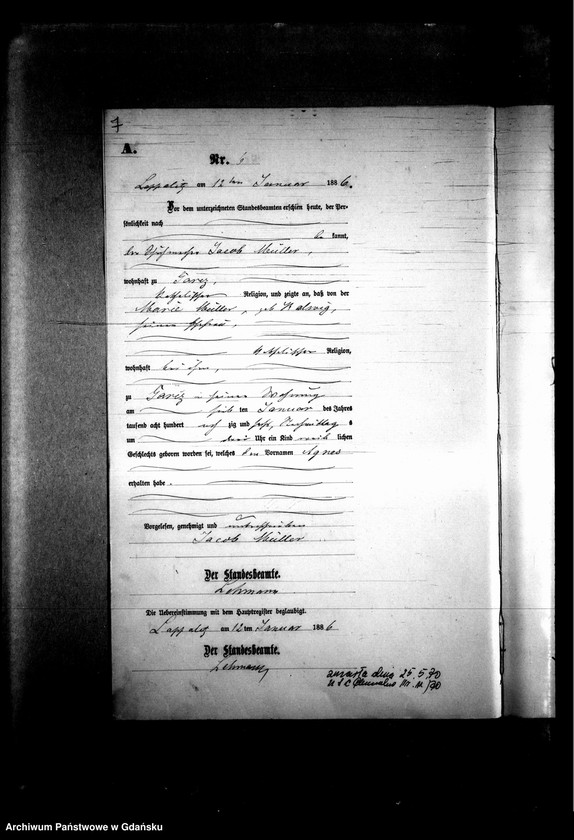 7
A.
Nr. 6
am 12ten Januar 1886.
Vor dem unterzeichneten Standesbeamten erschien heute, der Per-
sönlichkeit nach
be kannt,
der Jacob Müller,
wohnhaft zu
katholischer Religion, und zeigte an, daß von der
Marie Müller, geb
seiner Ehefrau,
katholischer Religion,
wohnhaft bei ihm,
zu in seiner Wohnung
am ten Januar des Jahres
tausend acht hundert acht zig und sechs, Nachmittag s
um drei Uhr ein Kind weib lichen
Geschlechts geboren worden sei, welches den Vornamen Agnes
erhalten habe.
Vorgelesen, genehmigt und unterschrieben
Jacob Müller
Der Standesbeamte.
Lehmann
Die Uebereinstimmung mit dem Hauptregister beglaubigt.
am 12ten Januar 1886
Der Standesbeamte.
Lehmann
zmarła dnia 25.5.70
Archiwum Państwowe w Gdańsku